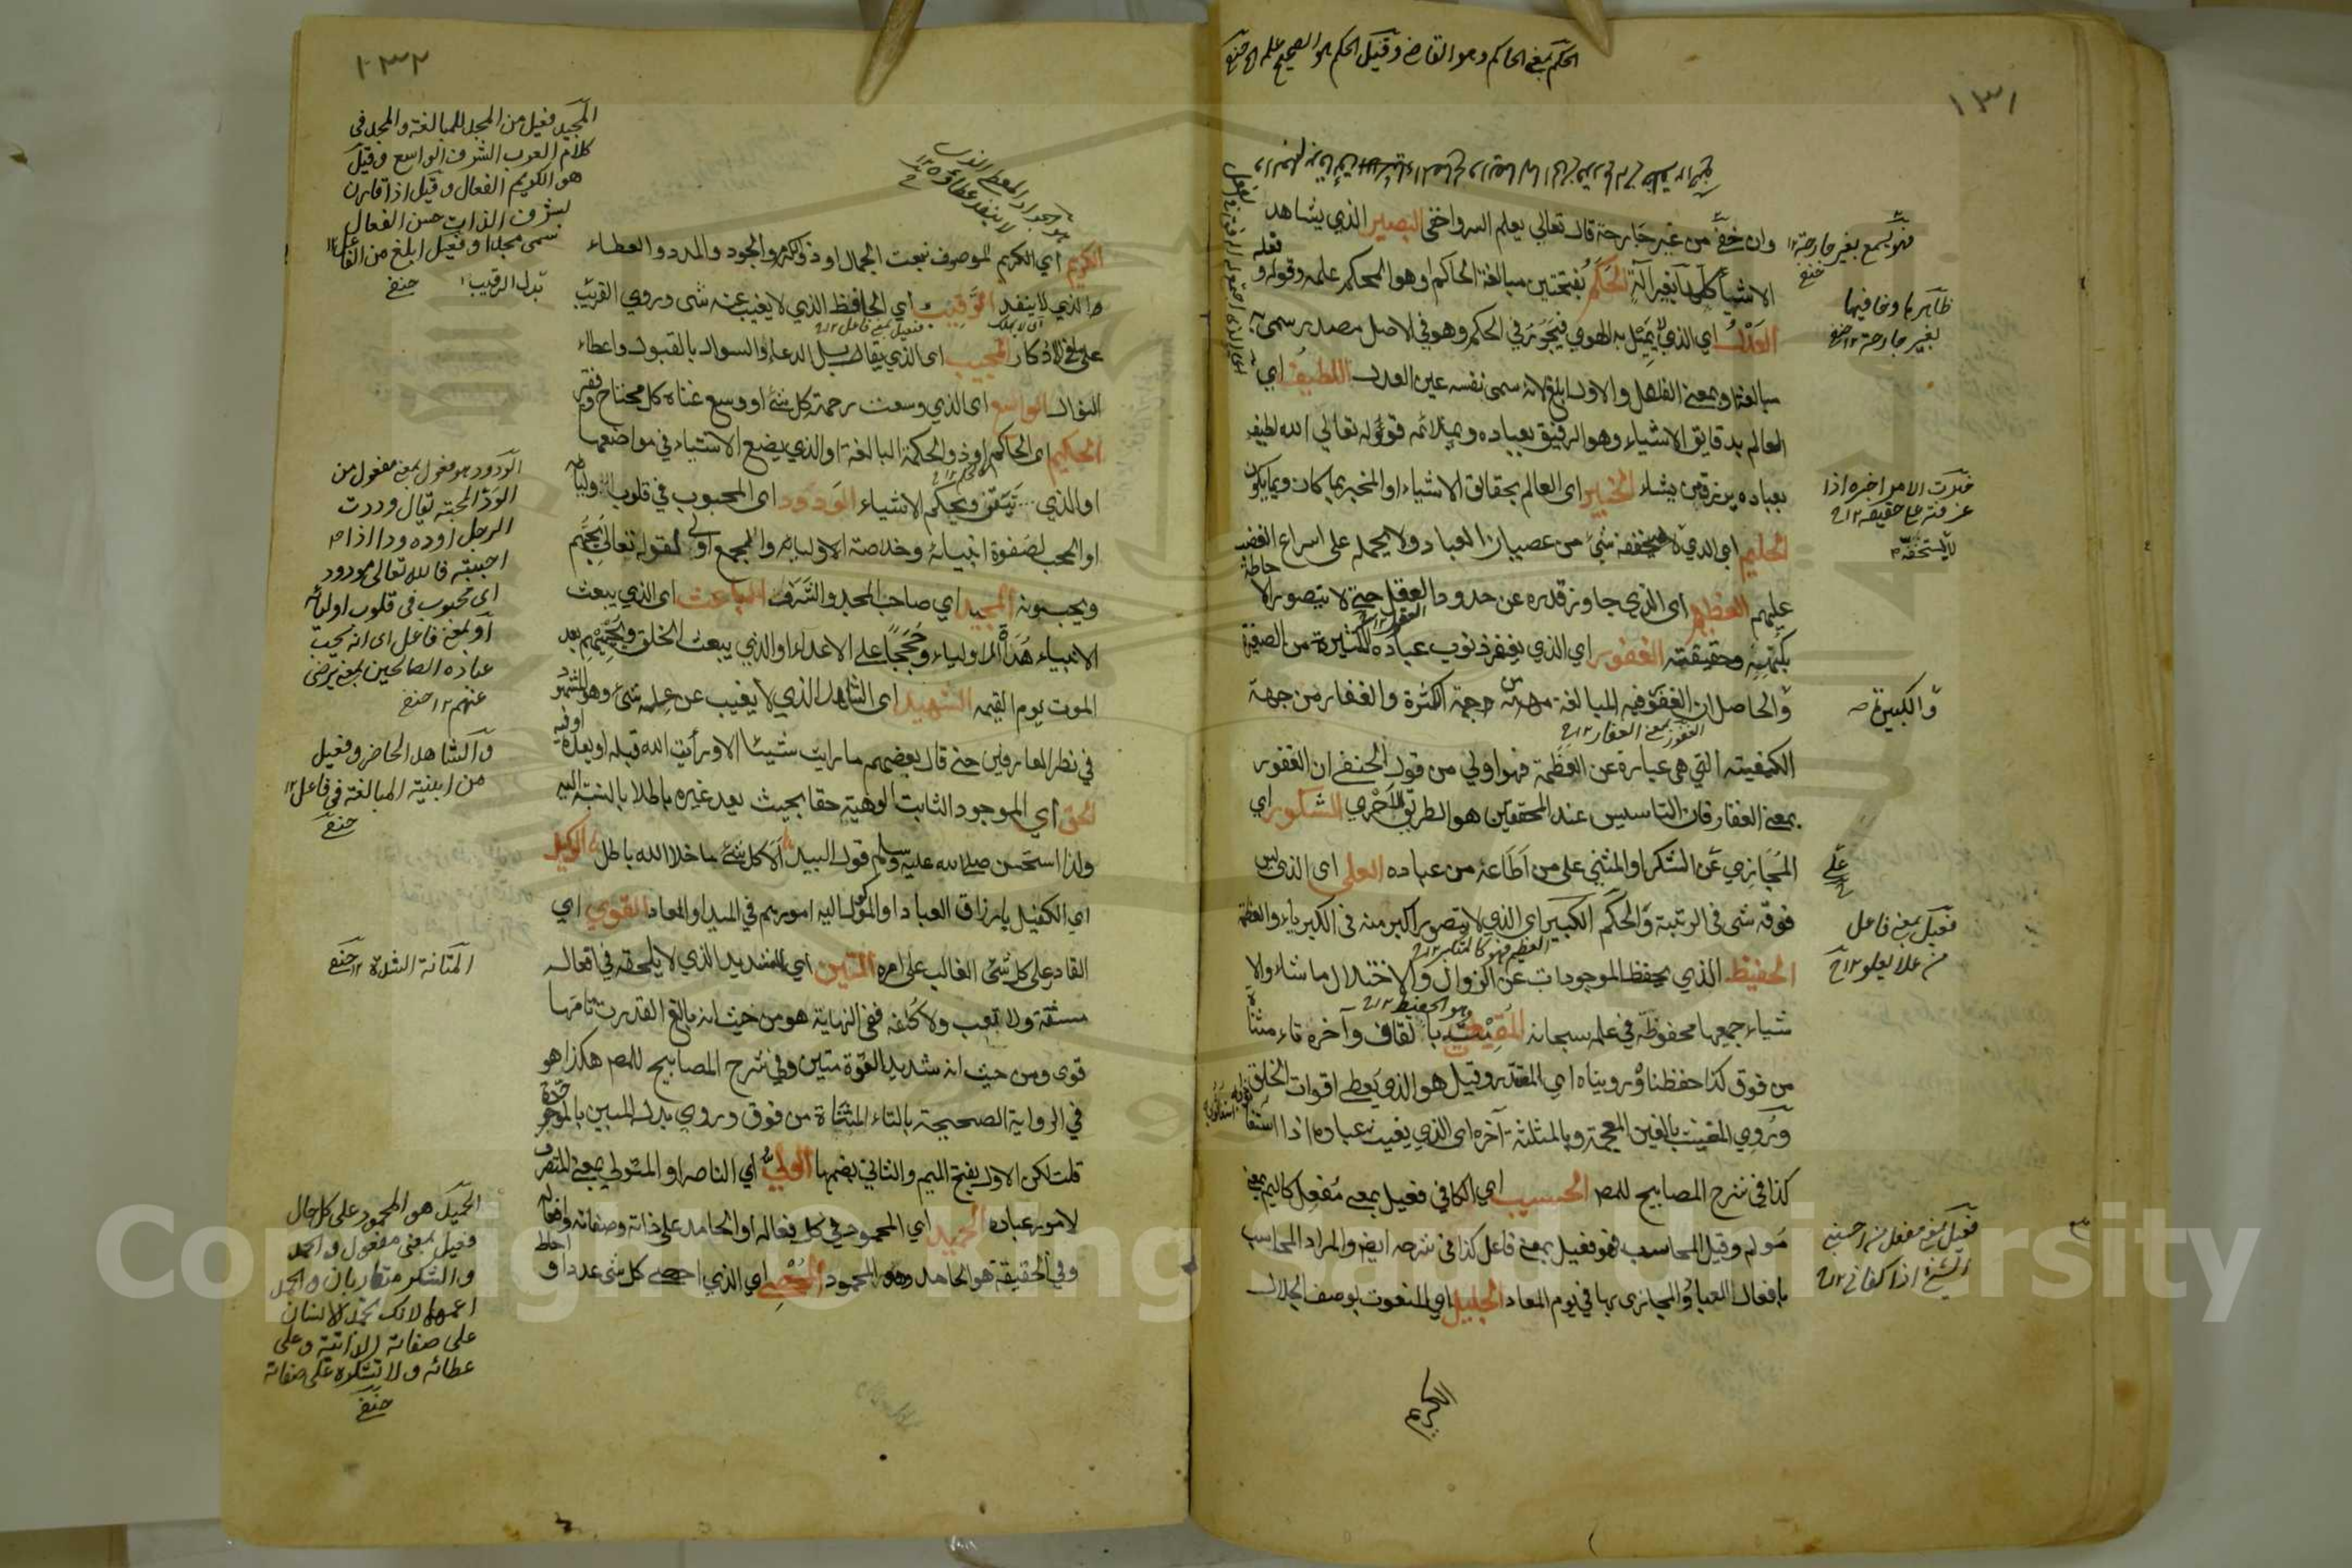 ١٣١
الحكم بمعنى الحاكم وهو القاضي وقيل الحكم هو الصحيح علمه
وان خفي من غير جارحة قال تعالى يعلم السر واخفى البصير الذي يشاهد
الاشياء كلها بغير آلة الحكم بفتحتين مبالغة الحاكم او هو المحكم علمه وقوله و فعله
العدل اي الذي لا يميل به الهوى فيجور في الحكم وهو في الاصل مصدر سمي به
مبالغة او بمعنى الفاعل والاول ابلغ لانه سمى نفسه عين العدل اللطيف اي
العالم بدقايق الاشياء وهو الرفيق بعباده قوله تعالى الله لطيف
بعباده يرزق من يشاء الخبير اي العالم بحقائق الاشياء او المخبر بما كان وبما يكون
الحليم اي الذي لا شيء من عصيان العباد ولا يحمله على اسراع الغضب
عليهم العظيم اي الذي جاوز قدره عن حدود العقل حتى لا يتصور الاحاطة
بكنهه وحقيقته الغفور اي الذي يغفر ذنوب عباده الكثيرة من الصغيرة
والحاصل ان الغفور فيه المبالغة من جهة الكثرة والغفار من جهة
الكيفية التي هي عبارة عن العظمة فهو اولى من قول الحنفي ان الغفور
بمعنى الغفار فان التاسيس عند المحققين هو الطريق الاحرى الشكور اي
المجازي عن الشكر او المثني على من اطاعه من عباده العلي اي الذي ليس
فوقه شى في الرتبة والحكم الكبير اي الذي لا يتصور اكبر منه في الكبرياء والعظمة
الحفيظ الذي يحفظ الموجودات عن الزوال والاختلال ما شاء والا
شياء جميعها محفوظة في علمه سبحانه المقيت بالقاف وآخره تاء مثناة
من فوق كذا حفظناه ورويناه اي المقتدر وقيل هو الذي يعطي اقوات الخلق
وروي المغيث بالغين المعجمة وبالمثلثة آخره اي الذي يغيث عباده اذا استغا
كذا في شرح المصابيح للمصـ الحسيب اي الكافي فعيل بمعنى مفعل كاليم بمعنى
مولم وقيل المحاسب فهو فعيل بمعنى فاعل كذا في شرحه ايضا والمراد المحاسب
بافعال العباد والمجازي بها في يوم المعاد الجليل اي المنعوت بوصف الجلال
الكريم
فهو يسمع بغير جارحة ١٢
حنفي
ظاهرها وخافيها
بغير جارحة ١٢ حنفي
الامر اخبره اذا
عرفته على حقيقته ١٢
لا يستخفه
والكبيرة صـ
فعيل بمعنى فاعل
من علا يعلو ١٢
فعيل بمعنى مفعل من احسبني
الشيء اذا كفاني ١٢
١٣٢
هو الجواد المعطي الذي
لا ينفد عطاؤه ١٢
الكريم اي الكريم الموصوف بنعت الجمال او ذو الكرم والجود والمدد والعطاء
الذي لا ينفد الرقيب اي الحافظ الذي لا يغيب عنه شى وروي القريب
المجيب اى الذي يقابل الدعاء والسوال بالقبول واعطاء
النوال الواسع اى الذي وسعت رحمته كل شئ او وسع غناه كل محتاج وفقير
الحكيم اى الحاكم او ذو الحكمة البالغة او الذي يضع الاشياء في مواضعها
او الذي يتقن ويحكم الاشياء الودود اى المحبوب في قلوب اوليائه
او المحب لصفوة انبيائه وخلاصة الاولياء والجمع اولى لقوله تعالى يحبهم
ويحبونه المجيد اي صاحب المجد والشرف الباعث اى الذي يبعث
الانبياء هداة للاولياء وحججا على الاعداء او الذي يبعث الخلق ويحييهم بعد
الموت يوم القيمة الشهيد اى الشاهد الذي لا يغيب عن علمه شئ وهو المشهود
في نظر العارفين حتى قال بعضهم ما رايت شيئا الا ورأيت الله قبله او بعده او فيه
الحق اي الموجود الثابت الوهيته حقا بحيث يعد غيره باطلا بالنسبة اليه
ولذا استحسن صلى الله عليه وسلم قول لبيد الا كل شئ ما خلا الله باطل الوكيل
اي الكفيل بارزاق العباد او الموكل اليه امورهم في المبدا والمعاد القوي اي
القادر على كل شئ الغالب على امره المتين اي الشديد الذي لا يلحقه في افعاله
مشقة ولا تعب ولا كلفة ففي النهاية هو من حيث انه بالغ القدرة تامها
قوى ومن حيث انه شديد القوة متين وفي شرح المصابيح للمصـ هكذا هو
في الرواية الصحيحة بالتاء المثناة من فوق وروي بدله المبين بالموحدة
قلت لكن الاول بفتح الميم والثاني بضمها الولي اي الناصر او المتولي بمعنى المتصرف
لامور عباده الحميد اي المحمود في كل فعاله او الحامد على ذاته وصفاته وافعاله
وفي الحقيقة هو الحامد وهو المحمود المحصي اي الذي احصى كل شى عددا و احاط
المجيد فعيل من المجد للمبالغة والمجد في
كلام العرب الشرف الواسع وقيل
هو الكريم الفعال وقيل اذا قارن
شرف الذات حسن الفعال
سمى مجدا وفعيل ابلغ من الفاعل ١٢
بدل الرقيب حنفي
الودود هو فعول بمعنى مفعول من
الود المحبة يقال وددت
الرجل اوده ودا اذا
احببته فالله تعالى مودود
اى محبوب في قلوب اوليائه
او بمعنى فاعل اى انه يحب
عباده الصالحين بمعنى يرضى
عنهم ١٢ حنفي
والشاهد الحاضر وفعيل
من ابنية المبالغة في فاعل ١٢
حنفي
المتانة الشدة ١٢ حنفي
الحميد هو المحمود على كل حال
فعيل بمعنى مفعول والحمد
والشكر متقاربان والحمد
اعمها لانك تحمد الانسان
على صفاته الذاتية وعلى
عطائه ولا تشكره على صفاته
حنفي
Copyright © King Saud University